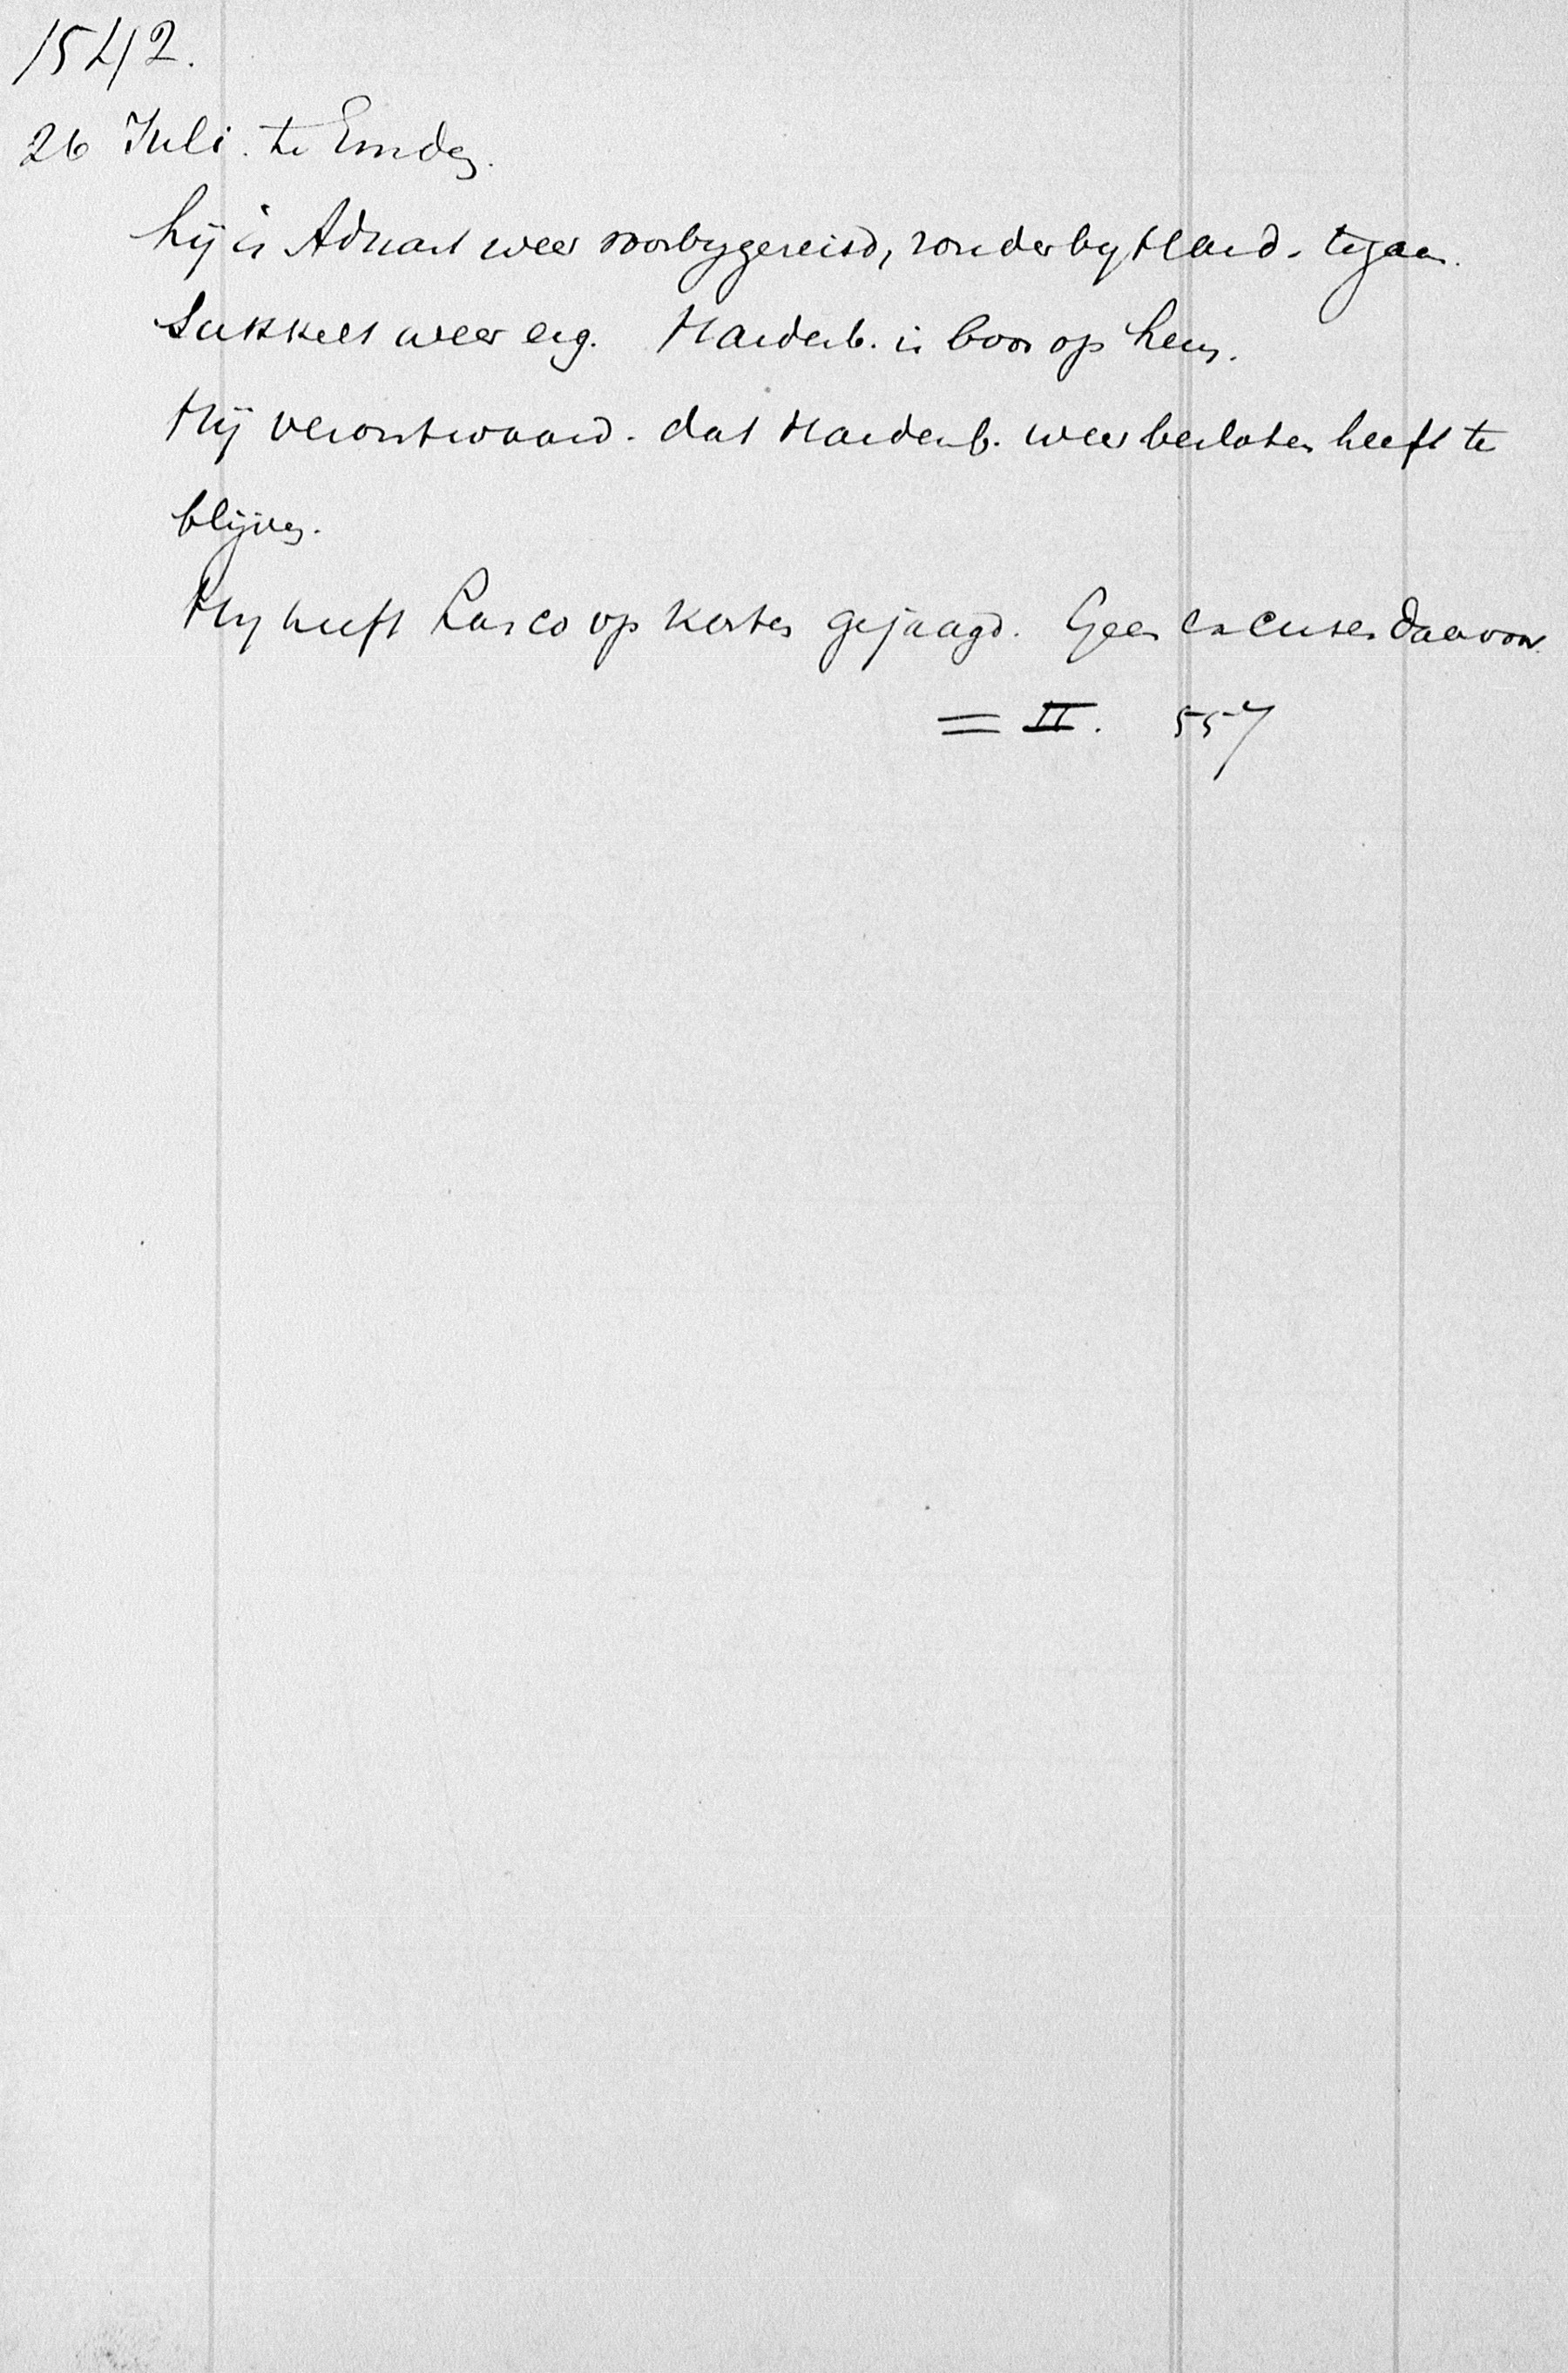 1542.
26 Juli. te Emden.
hij is Aduart weer voorbygereisd, zonder by Hard. te gaan.
Sukkelt weer erg. Hardenb. is boos op hem.
Hij verontwaard. dat Hardenb. weer besloten heeft te
blijven.
Hy heeft Lasco op kosten gejaagd. Geen excuses daarvoor.
= II. 557